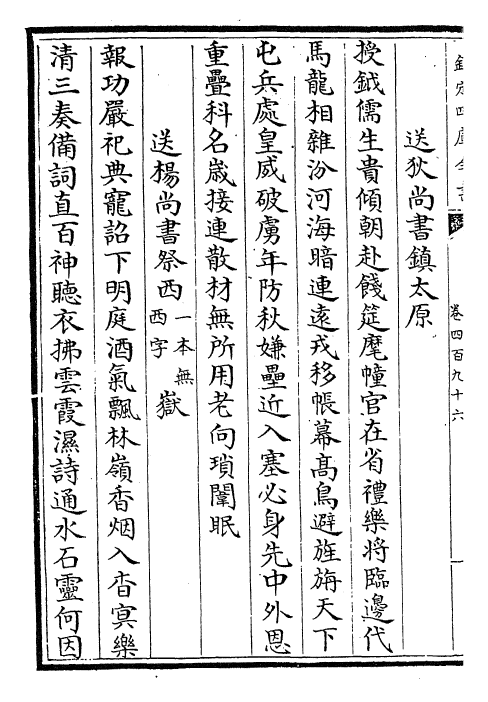 欽定四庫全書
卷四百九十六
一
送狄尚書鎮太原
授鉞儒生貴傾朝赴餞筵麾幢官在省禮樂將臨邊代
馬龍相雜汾河海暗連遠戎移帳幕髙鳥避旌旃天下
屯兵處皇威破虜年防秋嫌壘近入塞必身先中外恩
重疊科名嵗接連散材無所用老向瑣闈眠
送楊尚書祭西一本無西字嶽
報功嚴祀典寵詔下明庭酒氣飄林嶺香烟入杳冥樂
清三奏備詞直百神聽衣拂雲霞濕詩通水石靈何因